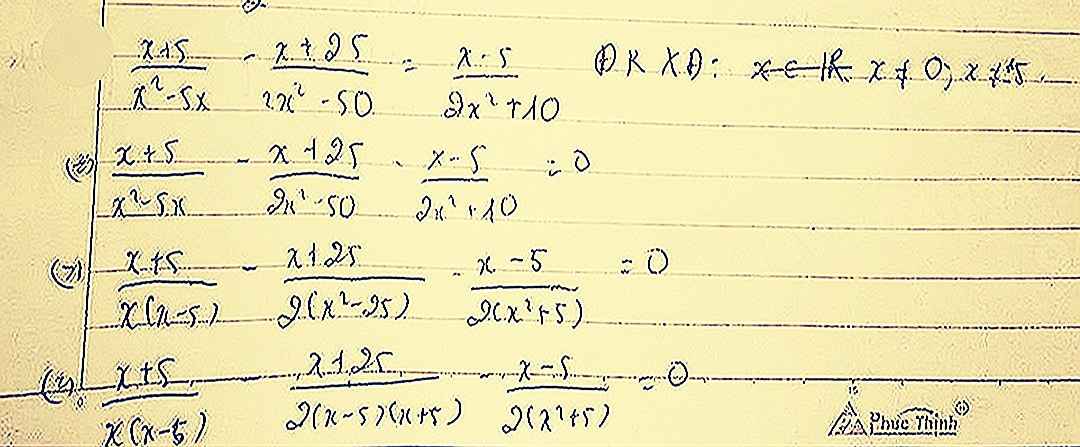 (x+5)/(x²-5x) - (x+25)/(2x²-50) = (x-5)/(2x²+10) ĐKXĐ: x∈ℝ x≠0; x≠±5.
(⇔) (x+5)/(x²-5x) - (x+25)/(2x²-50) - (x-5)/(2x²+10) = 0
(⇔) (x+5)/(x(x-5)) - (x+25)/(2(x²-25)) - (x-5)/(2(x²+5)) = 0
(⇔) (x+5)/(x(x-5)) (x+25)/(2(x-5)(x+5)) - (x-5)/(2(x²+5)) = 0
Phuc Thinh